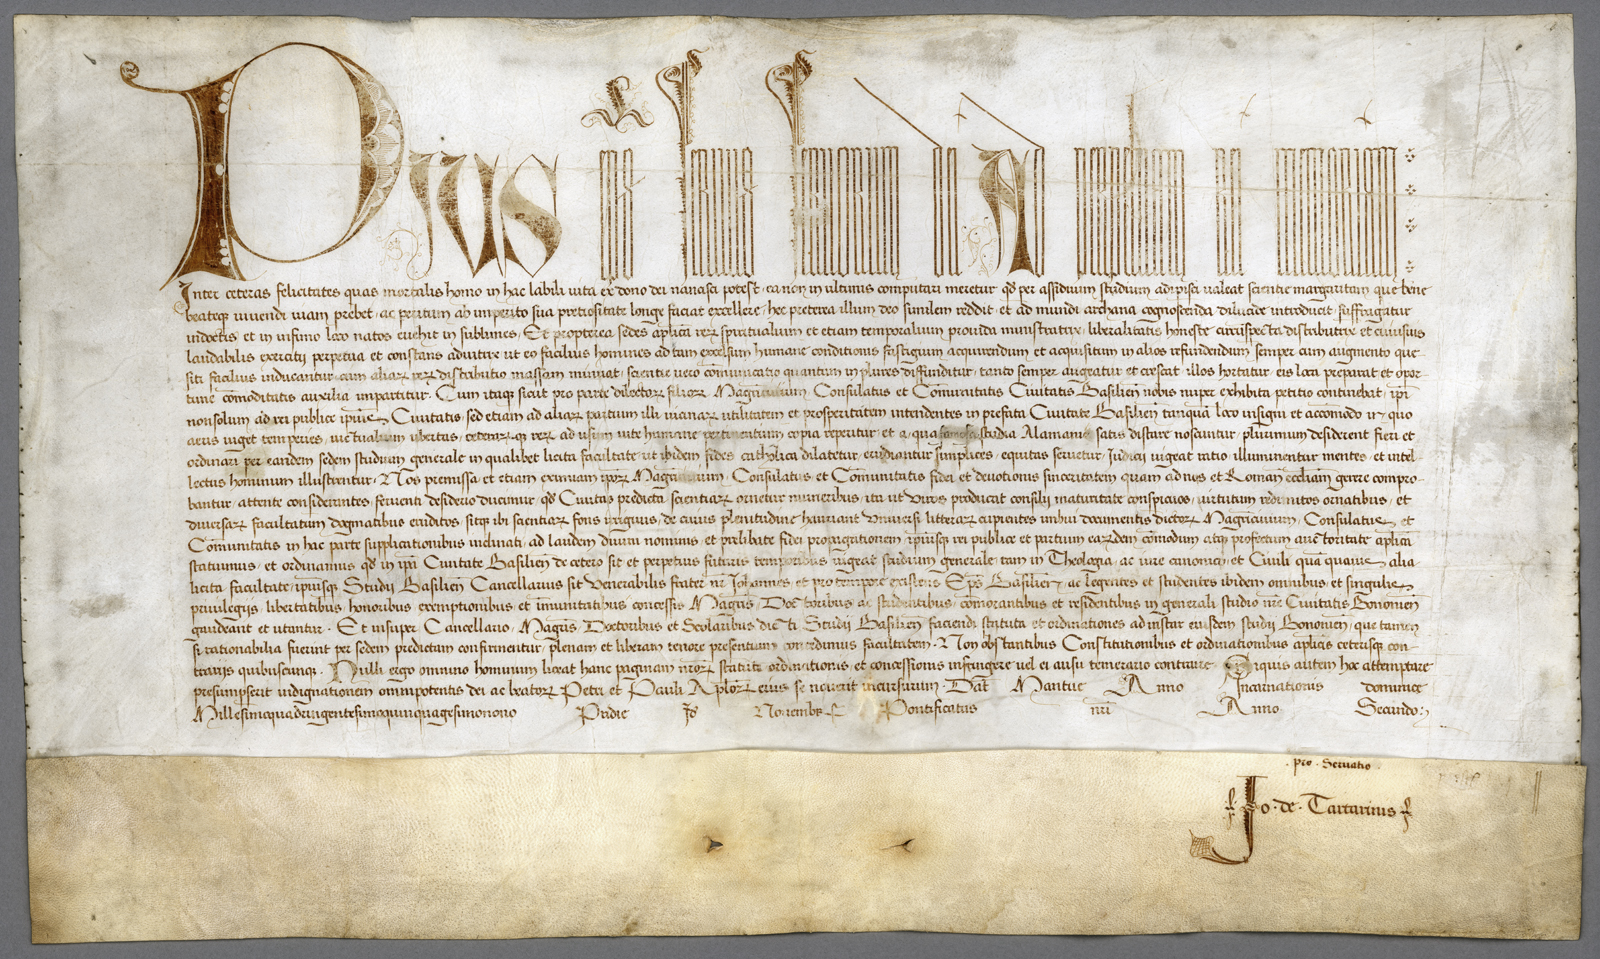 Pius eps servus servorum dei Ad perpetuam rei memoriam
Inter ceteras felicitates quas mortalis homo in hac labili vita ex dono dei nancisci potest, ea non in ultimis computari meretur qd per assiduum studium adipisci valeat scientie margaritam que bene
beateque vivendi viam prebet, ac peritum ab imperito sua pretiositate longe faciat excellere, hec preterea illum deo similem reddit, et ad mundi archana cognoscenda dilucide introducit, suffragatur
indoctis et in infimo loco natos evehit in sublimes, Et propterea sedes aplica rerz spiritualium et etiam temporalium provida ministratrix, liberalitatis honeste circumspecta distributrix et cuiusvis
laudabilis exercitij perpetua et constans adiutrix ut eo facilius homines ad tam excelsum humane conditionis fastigium acquirendum et acquisitum in alios refundendum semper cum augmento que
siti facilius inducantur, cum aliarz rerz distributio massam minuat, scientie vero comunicatio quantum in plures diffunditur, tanto semper augeatur et crescat, illos hortatur, eis loca preparat et opor-
tune comoditatis auxilia impartitur. Cum itaqz sicut pro parte dilectorz filiorz Magrorum Consulatus et Comunitatis Civitatis Basilien nobis nuper exhibita petitio continebat, ipi
nonsolum ad rei publice ipius Civitatis sed etiam ad aliarz partium illi vicinarz utilitatem et prosperitatem intendentes in prefata Civitate Basilien tanqua loco insigni et accomodo in quo
aeris viget temperies, victualium ubertas, ceterarzqz rerz ad usum vite humane pertinentium copia reperitur, et a qua famosa studia Alamanie satis distare noscuntur, plurimum desiderent fieri et
ordinari per eandem sedem studium generale in qualibet licita facultate ut ibidem fides catholica dilatetur, erudiantur simplices, equitas servetur, Iudicij vigeat ratio, illuminentur mentes, et intel-
lectus hominum illustrentur, Nos premissa, et etiam eximiam ipsorz Magrorum, Consulatus et Comunitatis fidei et devotionis sinceritatem quam ad nos et Roman eccliam gerere compro-
bantur, attente considerantes, ferventi desiderio ducimur, qd Civitas predicta scientiarz ornetur muneribus, ita ut viros producat consilij maturitate conspicuos, virtutum redimitos ornatibus, et
diversarz facultatum dogmatibus eruditos, sitqz ibi scientiarz fons irriguus, de cuius plenitudine hauriant Universi litterarz cupientes imbui documentis dictorz Magrorum, Consulatus et
Comunitatis in hac parte supplicationibus inclinati, ad laudem divini nominis, et prelibate fidei propagationem ipiusqz rei publice et partium earzdem comodum atqz profectum auctoritate aplica
statuimus, et ordinamus qd in ipa Civitate Basilien de cetero sit et perpetuis futuris temporibus vigeat studium generale, tam in Theologia, ac iure canonico et Civili qua quavis alia
licita facultate, ipiusqz Studij Basilien Cancellarius sit Venerabilis frater nr Iohannes et pro tempore existens Eps Basilien, ac legentes et studentes ibidem omnibus, et singulis
privilegijs, libertatibus, honoribus exemptionibus et imunitatibus concessis Magris, Doctoribus ac studentibus, comorantibus et residentibus in generali studio nre Civitatis Bononien
gaudeant et utantur. Et insuper Cancellario, Magris, Doctoribus et Scolaribus dicti Studij Basilien faciendi statuta et ordinationes ad instar eiusdem studij Bononien, que tamen
si rationabilia fuerint per sedem predictam confirmentur, plenam et liberam tenore presentium concedimus facultatem. Non obstantibus Constitutionibus et ordinationibus aplicis ceterisqz con-
trarijs quibuscunqz. Nulli ergo omnino hominum liceat hanc paginam nrorz statuti, ordinationis, et concessionis infringere vel ei ausu temerario contraire Siquis autem hoc attemptare
presumpserit indignationem omnipotentis dei ac beatorz Petri et Pauli Aplorz eius se noverit incursurum. Dat Mantue Anno Incarnationis dominice
Millesimoquadringentesimoquinquagesimonono Pridie Id Novembr Pontificatus nri Anno Secundo
pro Servatio
Jo. de. Tartarinis